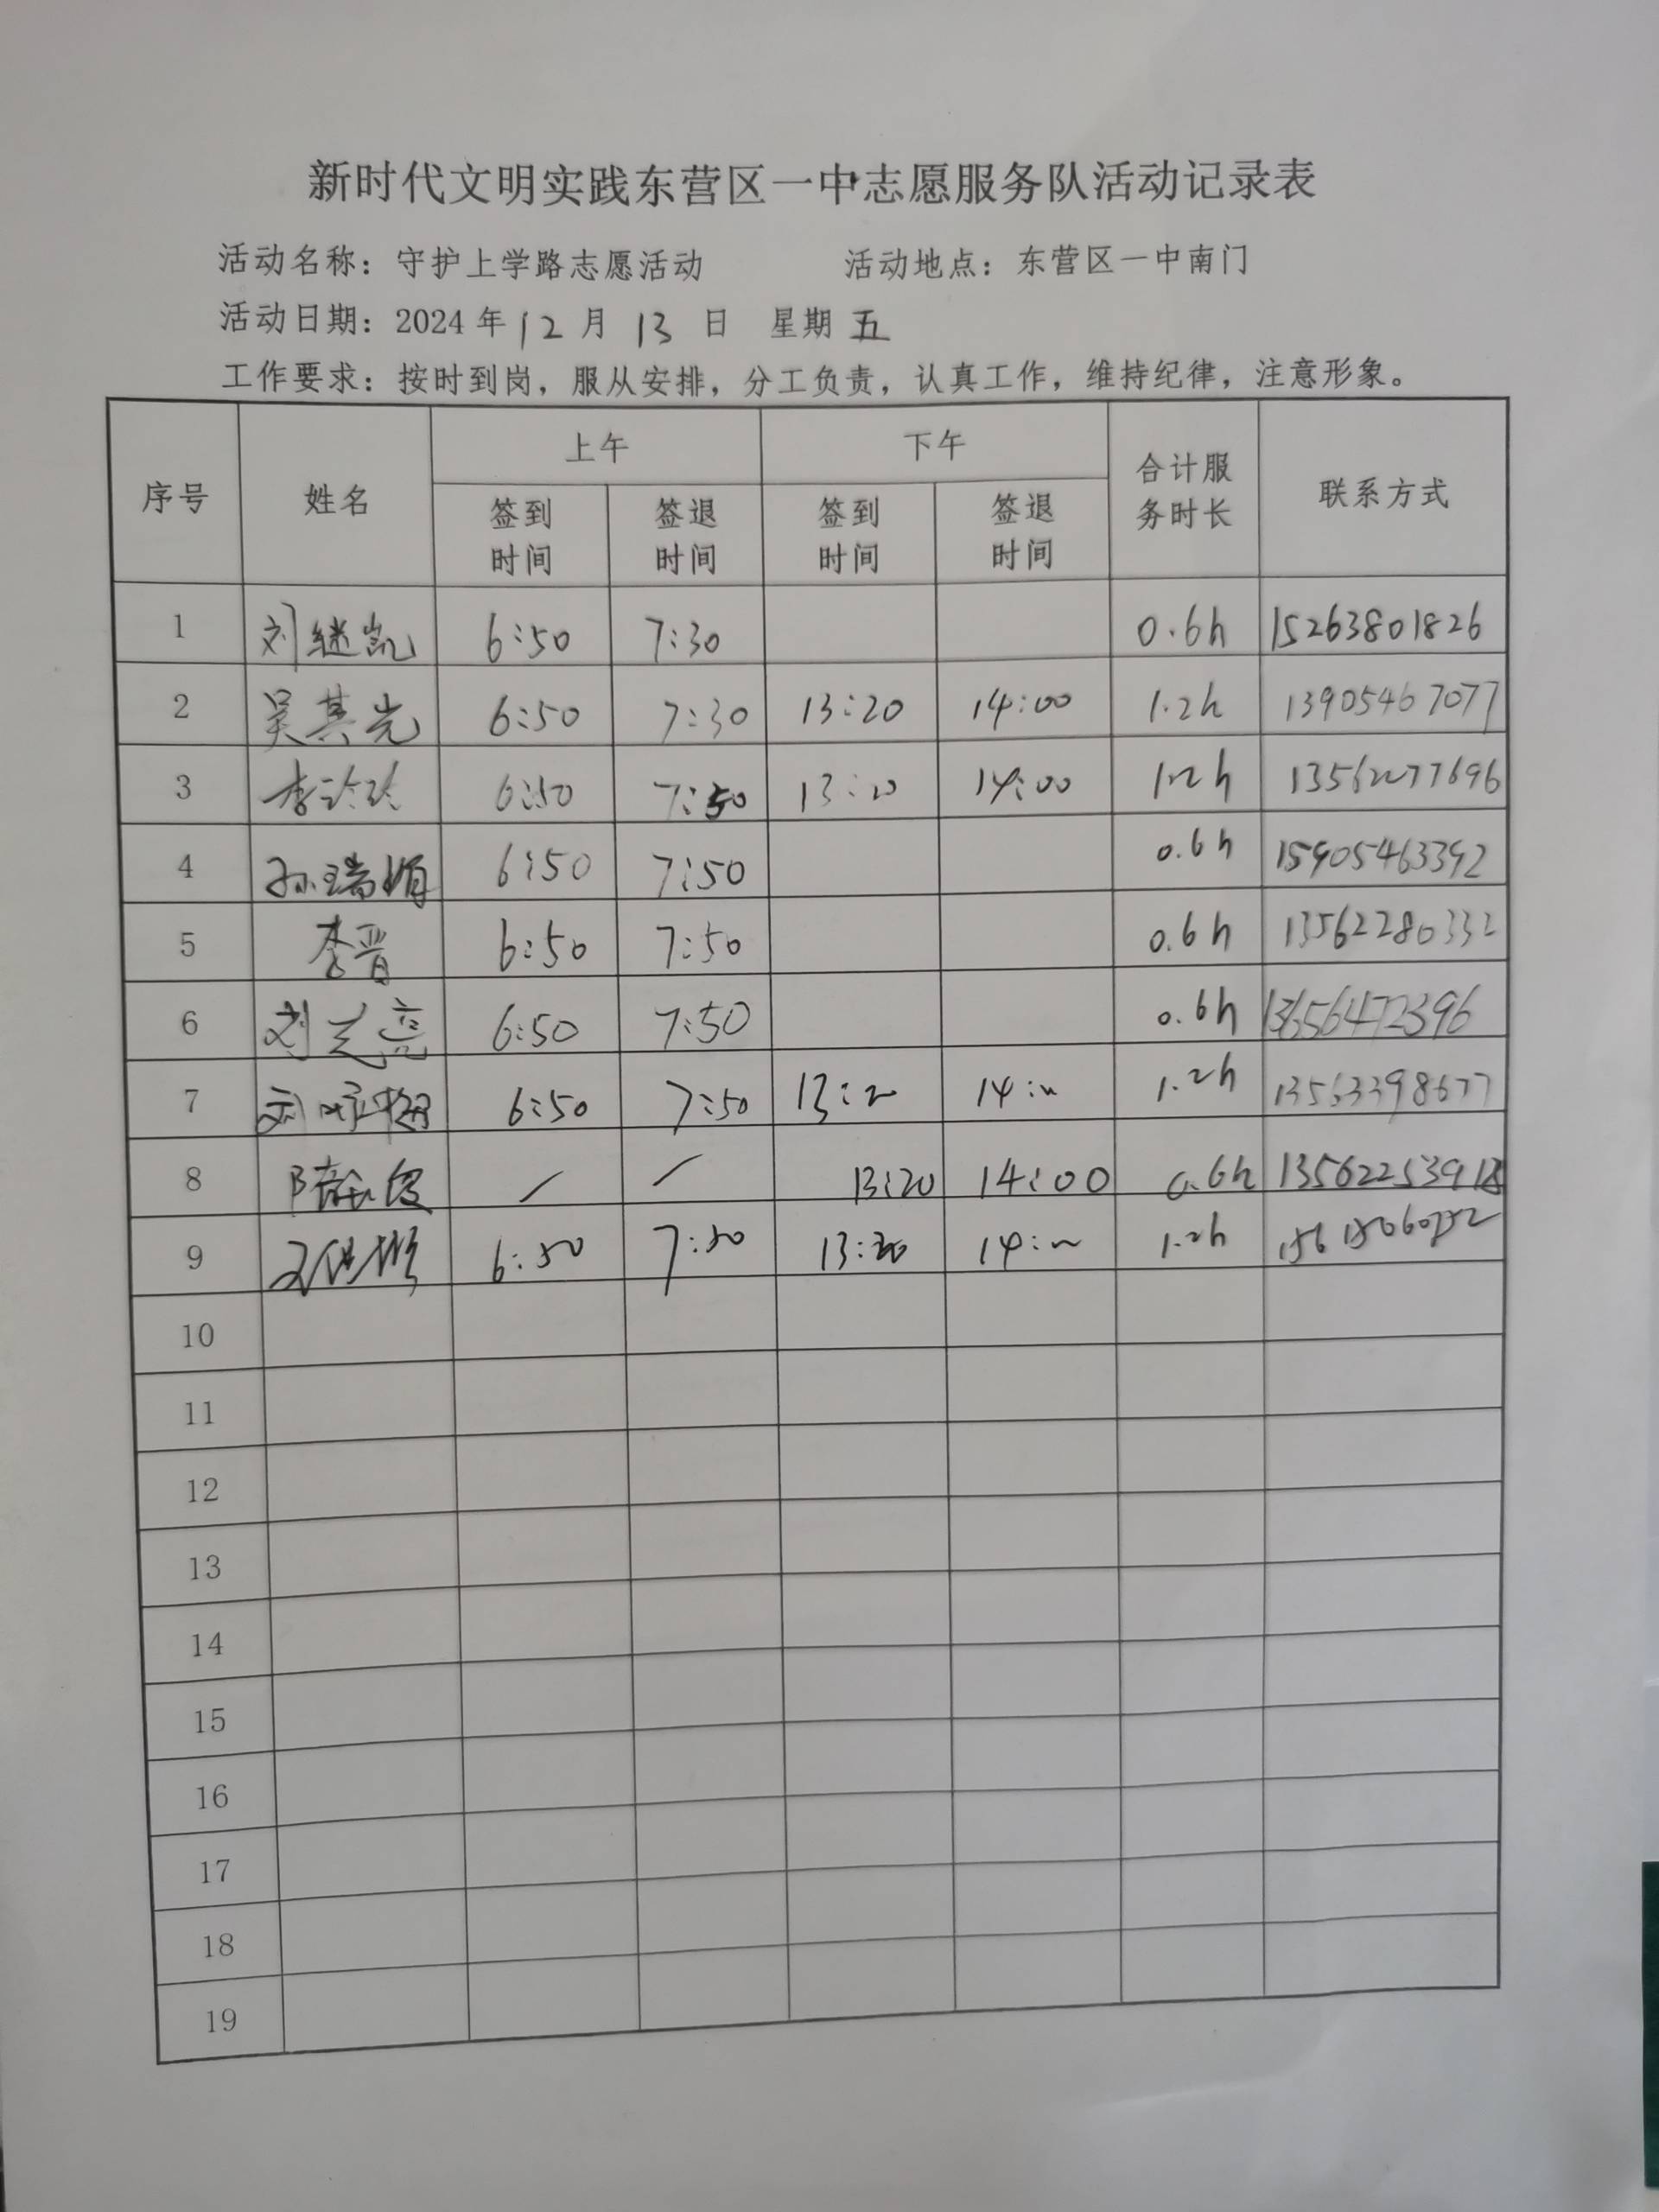 新时代文明实践东营区一中志愿服务队活动记录表
活动名称：守护上学路志愿活动 活动地点：东营区一中南门
活动日期：2024年12月13日 星期五
工作要求：按时到岗，服从安排，分工负责，认真工作，维持纪律，注意形象。
序号 姓名 上午 下午 合计服务时长 联系方式
签到时间 签退时间 签到时间 签退时间
1 刘继凯 6:50 7:30 0.6h 15263801826
2 吴其光 6:50 7:30 13:20 14:00 1.2h 13905467077
3 李玲玲 6:50 7:50 13:20 14:00 1.2h
4 孙瑞娟 6:50 7:50 0.6h 15905463392
5 李晋 6:50 7:50 0.6h 13562280332
6 刘芝亮 6:50 7:50 0.6h 13656472396
7 刘 6:50 7:50 13:20 14:00 1.2h 13563398677
8 / / 13:20 14:00 0.6h
9 6:50 7:50 13:20 14:00 1.2h
10
11
12
13
14
15
16
17
18
19